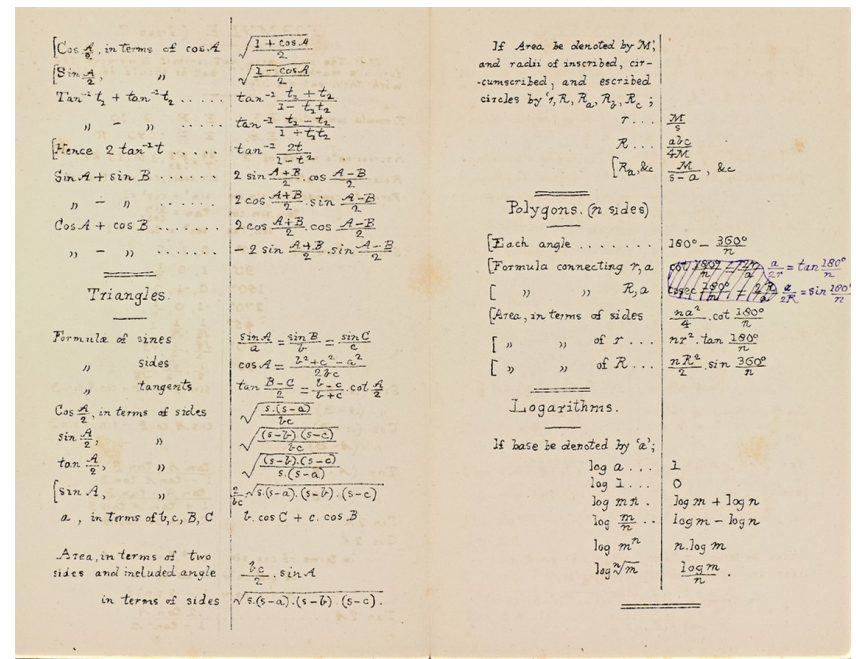 [Cos A/2, in terms of cos A √((1 + cos A)/2)
[Sin A/2, ,, √((1 − cos A)/2)
Tan⁻¹ t₁ + tan⁻¹ t₂ ..... tan⁻¹ (t₁ + t₂)/(1 − t₁t₂)
,, − ,, ..... tan⁻¹ (t₁ − t₂)/(1 + t₁t₂)
[Hence 2 tan⁻¹ t ..... tan⁻¹ 2t/(1 − t²)
Sin A + sin B ...... 2 sin (A+B)/2 . cos (A−B)/2
,, − ,, ...... 2 cos (A+B)/2 . sin (A−B)/2
Cos A + cos B ....... 2 cos (A+B)/2 . cos (A−B)/2
,, − ,, ....... − 2 sin (A+B)/2 . sin (A−B)/2
Triangles.
Formulæ of sines sin A/a = sin B/b = sin C/c
,, sides cos A = (b² + c² − a²)/2bc
,, tangents tan (B−C)/2 = (b−c)/(b+c) . cot A/2
Cos A/2, in terms of sides √(s.(s−a)/bc)
sin A/2, ,, √((s−b).(s−c)/bc)
tan A/2, ,, √((s−b).(s−c)/s.(s−a))
[sin A, ,, 2/bc √(s.(s−a).(s−b).(s−c))
a, in terms of b, c, B, C b. cos C + c. cos B
Area, in terms of two
sides and included angle bc/2 . sin A
in terms of sides √(s.(s−a).(s−b).(s−c)).
If Area be denoted by 'M';
and radii of inscribed, cir-
-cumscribed, and escribed
circles by 'r, R, Ra, Rb, Rc;
r ... M/s
R ... abc/4M
[Ra, &c M/(s−a), &c
Polygons. (n sides)
[Each angle ........ 180° − 360°/n
[Formula connecting r, a cot 180°/n = 2r/a a/2r = tan 180°/n
[ ,, ,, R, a cosec 180°/n = 2R/a a/2R = sin 180°/n
[Area, in terms of sides na²/4 . cot 180°/n
[ ,, ,, of r ... nr². tan 180°/n
[ ,, ,, of R ... nR²/2 . sin 360°/n
Logarithms.
If base be denoted by 'a';
log a ... 1
log 1 ... 0
log mn . log m + log n
log m/n .. log m − log n
log mⁿ n. log m
log ⁿ√m log m/n .